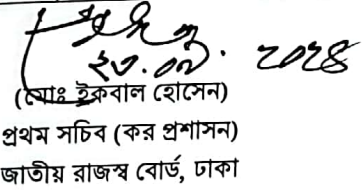 ২৩.০৭.২০২৪
(মোঃ ইকবাল হোসেন)
প্রথম সচিব (কর প্রশাসন)
জাতীয় রাজস্ব বোর্ড, ঢাকা